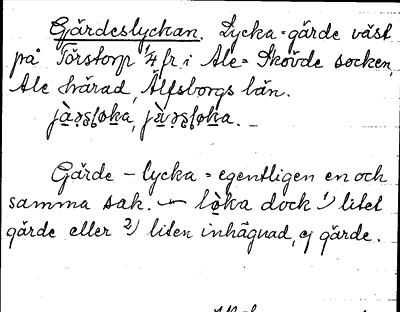 Gärdeslyckan. Lycka = gärde väst
på Törstorp 1/4 fr. i Ale = Skövde socken,
Ale härad, Älfsborgs län.
Gärde – lycka = egentligen en och
samma sak. – lo̱ka dock 1) litet
gärde eller 2) liten inhägnad, ej gärde.